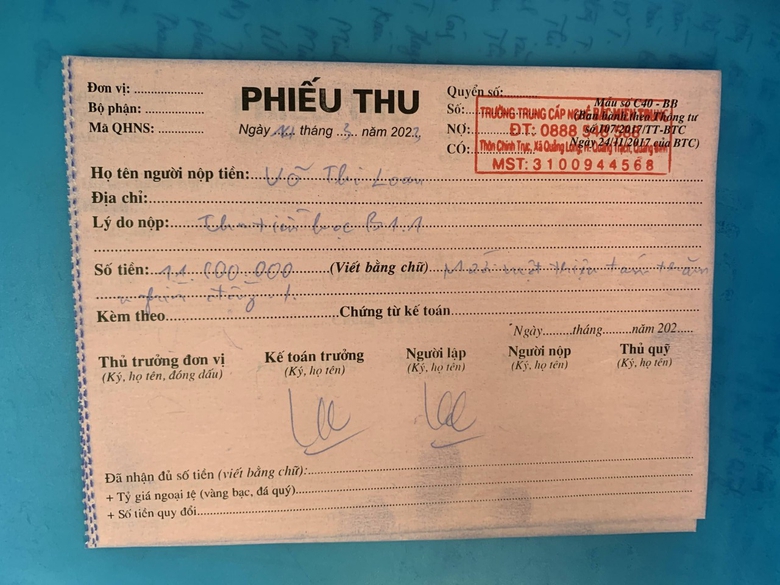 Đơn vị:
Bộ phận:
Mã QHNS:
PHIẾU THU
Ngày tháng 3 năm 2023
Quyển số:
Số:
NỢ:
CÓ:
Mẫu số C40 - BB
(Ban hành theo Thông tư
số 107/2017/TT-BTC
Ngày 24/11/2017 của BTC)
TRƯỜNG TRUNG CẤP NGHỀ BẮC MIỀN TRUNG
ĐT: 0888 588
Thôn Chính Trực, Xã Quảng Long, H. Quảng Trạch, Quảng Bình
MST: 3100944568
Họ tên người nộp tiền: Võ Thị Loan
Địa chỉ:
Lý do nộp: Thu tiền học B11
Số tiền: 11.800.000 (Viết bằng chữ) Mười một triệu tám trăm
đồng
Kèm theo Chứng từ kế toán
Ngày tháng năm 202
Thủ trưởng đơn vị Kế toán trưởng Người lập Người nộp Thủ quỹ
(Ký, họ tên, đóng dấu) (Ký, họ tên) (Ký, họ tên) (Ký, họ tên) (Ký, họ tên)
Đã nhận đủ số tiền (viết bằng chữ):
+ Tỷ giá ngoại tệ (vàng bạc, đá quý)
+ Số tiền quy đổi